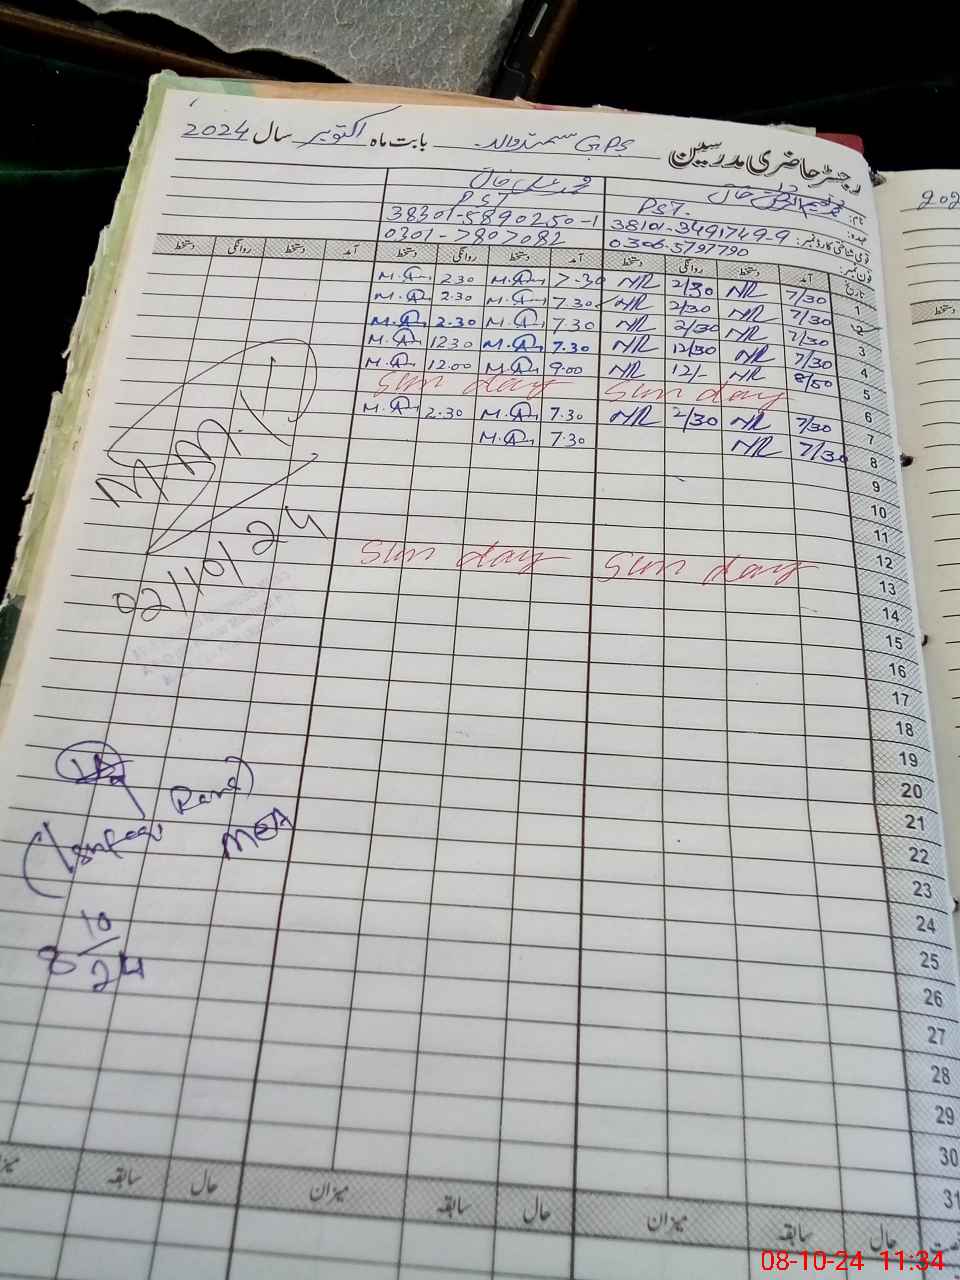 رجسٹر حاضری مدرسین GPS سمندوالہ بابت ماہ اکتوبر سال 2024
نام: خان محمد علی خان
عہدہ: PST. PST
قومی شناختی کارڈ نمبر: 38101-3491749-9 38301-5890250-1
فون نمبر: 0306-5797790 0301-7807082
تاریخ آمد دستخط روانگی دستخط آمد دستخط روانگی دستخط آمد دستخط روانگی دستخط
1 7/30 NR 2/30 NR 7.30 M.A 2.30 M.A
2 7/30 NR 2/30 NR 7.30 M.A 2.30 M.A
3 7/30 NR 2/30 NR 7.30 M.A 2.30 M.A
4 7/30 NR 12/30 NR 7.30 M.A 12.30 M.A
5 8/50 NR 12/- NR 9.00 M.A 12.00 M.A
6 Sun day Sun day
7 7/30 NR 2/30 NR 7.30 M.A 2.30 M.A
8 7/30 NR 7.30 M.A
9
10
11
12
13 Sun day Sun day
14
15
16
17
18
19
20
21
22
23
24
25
26
27
28
29
30
31
02/10/24
MEA
8 10/24
حال سابقہ میزان حال سابقہ میزان حال سابقہ میزان
08-10-24 11:34